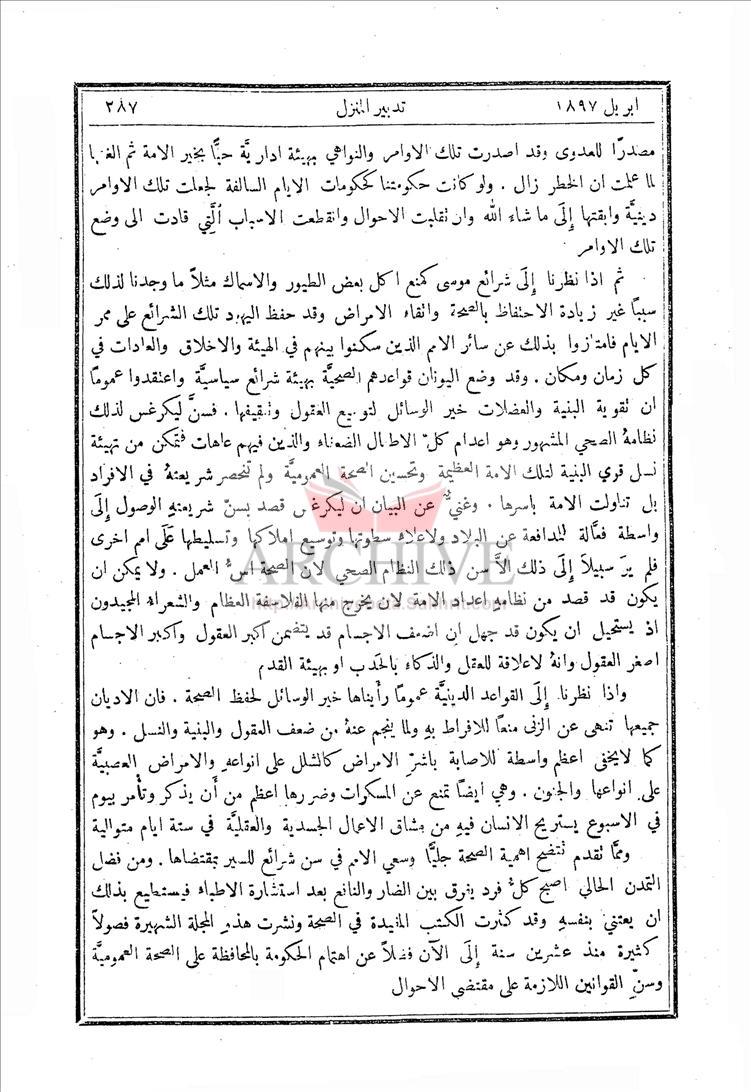 ابريل ١٨٩٧ تدبير المنزل ٢٨٧
مصدرًا للعدوى وقد اصدرت تلك الاوامر والنواهي بهيئة ادارية حبًّا بخير الامة ثم الغتها
لما علمت ان الخطر زال . ولو كانت حكومتنا كحكومات الايام السالفة لجعلت تلك الاوامر
دينيَّة وابقتها إِلَى ما شاء الله وان تقلبت الاحوال وانقطعت الاسباب الَّتِي قادت الى وضع
تلك الاوامر
ثم اذا نظرنا إِلَى شرائع موسى كمنع اكل بعض الطيور والاسماك مثلاً ما وجدنا لذلك
سببًا غير زيادة الاحتفاظ بالصحة واتقاء الامراض وقد حفظ اليهود تلك الشرائع على ممر
الايام فامتازوا بذلك عن سائر الامم الذين سكنوا بينهم في الهيئة والاخلاق والعادات في
كل زمان ومكان . وقد وضع اليونان قواعدهم الصحيَّة بهيئة شرائع سياسيَّة واعتقدوا عمومًا
ان تقوية البنية والعضلات خير الوسائل لتوسيع العقول وتثقيفها . فسنَّ ليكرغس لذلك
نظامهُ الصحي المشهور وهو اعدام كلّ الاطفال الضعفاء والذين فيهم عاهات فتمكن من تهيئة
نسل قوي البنية لتلك الامة العظيمة وتحسين الصحة العموميَّة ولم تنحصر شريعتهُ في الافراد
بل تناولت الامة باسرها . وغنيٌّ عن البيان ان ليكرغس قصد بسنّ شريعتهِ الوصول إِلَى
واسطة فعَّالة للمدافعة عن البلاد ولاعلاء سطوتها وتوسيع املاكها وتسليطها عَلَى امم اخرى
فلم يرَ سبيلاً إِلَى ذلك الاَّ سن ذلك النظام الصحي لان الصحة اسّ العمل . ولا يمكن ان
يكون قد قصد من نظامهِ اعداد الامة لان يخرج منها الفلاسفة العظام والشعراء المجيدون
اذ يستحيل ان يكون قد جهل ان اضعف الاجسام قد يتضمن اكبر العقول واكبر الاجسام
اصغر العقول وانهُ لاعلاقة للعقل والذكاء بالحدب او بهيئة القدم
واذا نظرنا إِلَى القواعد الدينيَّة عمومًا رأيناها خير الوسائل لحفظ الصحة . فان الاديان
جميعها تنهى عن الزنى منعًا للافراط بهِ ولما ينجم عنهُ من ضعف العقول والبنية والنسل . وهو
كما لايخفى اعظم واسطة للاصابة باشرّ الامراض كالشلل على انواعهِ والامراض العصبيَّة
على انواعها والجنون . وهي ايضًا تمنع عن المسكرات وضررها اعظم من أن يذكر وتأمر بيوم
في الاسبوع يستريح الانسان فيهِ من مشاق الاعمال الجسدية والعقليَّة في ستة ايام متوالية
وممَّا تقدم تتضح اهمية الصحة جليًّا وسعي الامم في سن شرائع للسير بمقتضاها . ومن فضل
التمدن الحالي اصبح كلُّ فرد يفرق بين الضار والنافع بعد استشارة الاطباء فيستطيع بذلك
ان يعتني بنفسهِ وقد كثرت الكتب المفيدة في الصحة ونشرت هذهِ المجلة الشهيرة فصولاً
كثيرة منذ عشرين سنة إِلَى الآن فضلاً عن اهتمام الحكومة بالمحافظة على الصحة العموميَّة
وسنّ القوانين اللازمة على مقتضى الاحوال
ARCHIVE